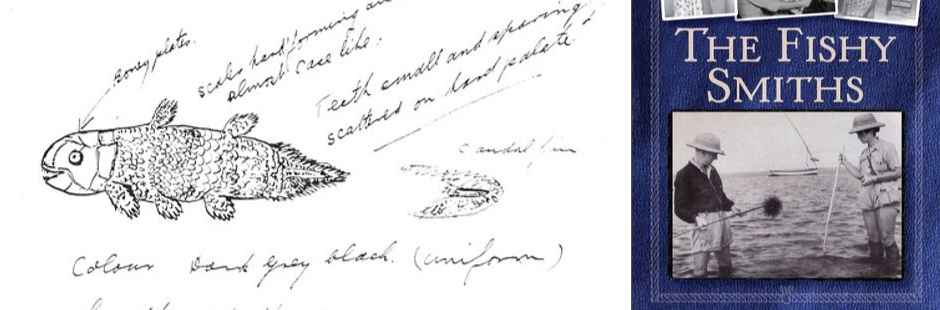 Boney plates.
scales hard forming an
almost case like.
Teeth small and sparing
scattered on hard palate
Caudal fin
Colour Dark grey black. (uniform)
THE FISHY
SMITHS